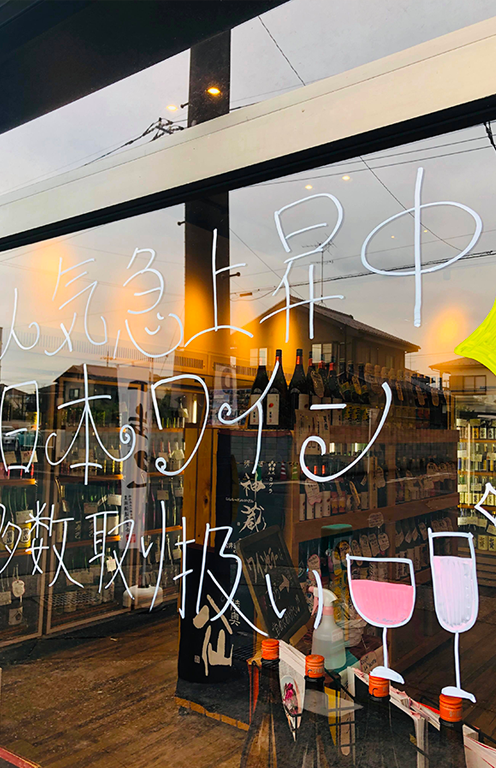 人気急上昇中
日本ワイン
多数取り扱い
八仙